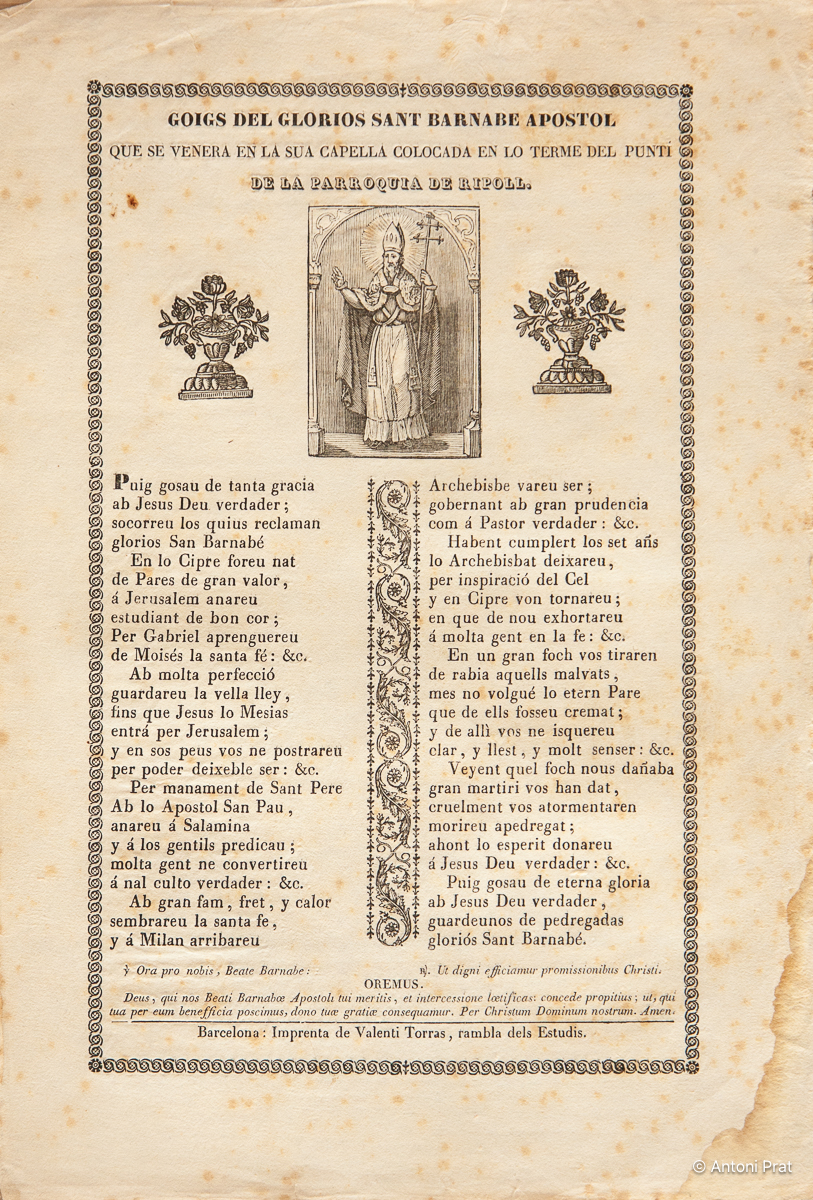 GOIGS DEL GLORIOS SANT BARNABE APOSTOL
QUE SE VENERA EN LA SUA CAPELLA COLOCADA EN LO TERME DEL PUNTÍ
DE LA PARROQUIA DE RIPOLL.
Puig gosau de tanta gracia
ab Jesus Deu verdader ;
socorreu los quius reclaman
glorios San Barnabé
En lo Cipre foreu nat
de Pares de gran valor ,
á Jerusalem anareu
estudiant de bon cor ;
Per Gabriel aprenguereu
de Moisés la santa fé : &c.
Ab molta perfecció
guardareu la vella lley ,
fins que Jesus lo Mesias
entrá per Jerusalem ;
y en sos peus vos ne postrareu
per poder deixeble ser : &c.
Per manament de Sant Pere
Ab lo Apostol San Pau ,
anareu á Salamina
y á los gentils predicau ;
molta gent ne convertireu
á nal culto verdader : &c.
Ab gran fam , fret , y calor
sembrareu la santa fe ,
y á Milan arribareu
Archebisbe vareu ser ;
gobernant ab gran prudencia
com á Pastor verdader : &c.
Habent cumplert los set añs
lo Archebisbat deixareu ,
per inspiració del Cel
y en Cipre von tornareu ;
en que de nou exhortareu
á molta gent en la fe : &c.
En un gran foch vos tiraren
de rabia aquells malvats ,
mes no volgué lo etern Pare
que de ells fosseu cremat ;
y de allì vos ne isquereu
clar , y llest , y molt senser : &c.
Veyent quel foch nous dañaba
gran martiri vos han dat ,
cruelment vos atormentaren
morireu apedregat ;
ahont lo esperit donareu
á Jesus Deu verdader : &c.
Puig gosau de eterna gloria
ab Jesus Deu verdader ,
guardeunos de pedregadas
gloriós Sant Barnabé.
℣ Ora pro nobis , Beate Barnabe : ℟. Ut digni efficiamur promissionibus Christi.
OREMUS.
Deus , qui nos Beati Barnabœ Apostoli tui meritis , et intercessione lœtificas : concede propitius ; ut, qui
tua per eum benefficia poscimus, dono tuœ gratiœ consequamur. Per Christum Dominum nostrum. Amen.
Barcelona : Imprenta de Valenti Torras , rambla dels Estudis.
© Antoni Prat